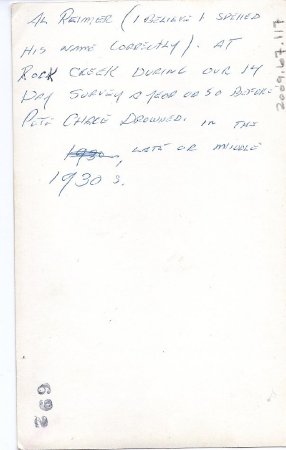 AL REIMER (I BELIEVE I SPELLED
HIS NAME CORRECTLY). AT
ROCK CREEK DURING OUR 14
DAY SURVEY A YEAR OR SO BEFORE
PETE CHASE DROWNED. IN THE
1930s, LATE OR MIDDLE
1930 S.
2009.67.117
692